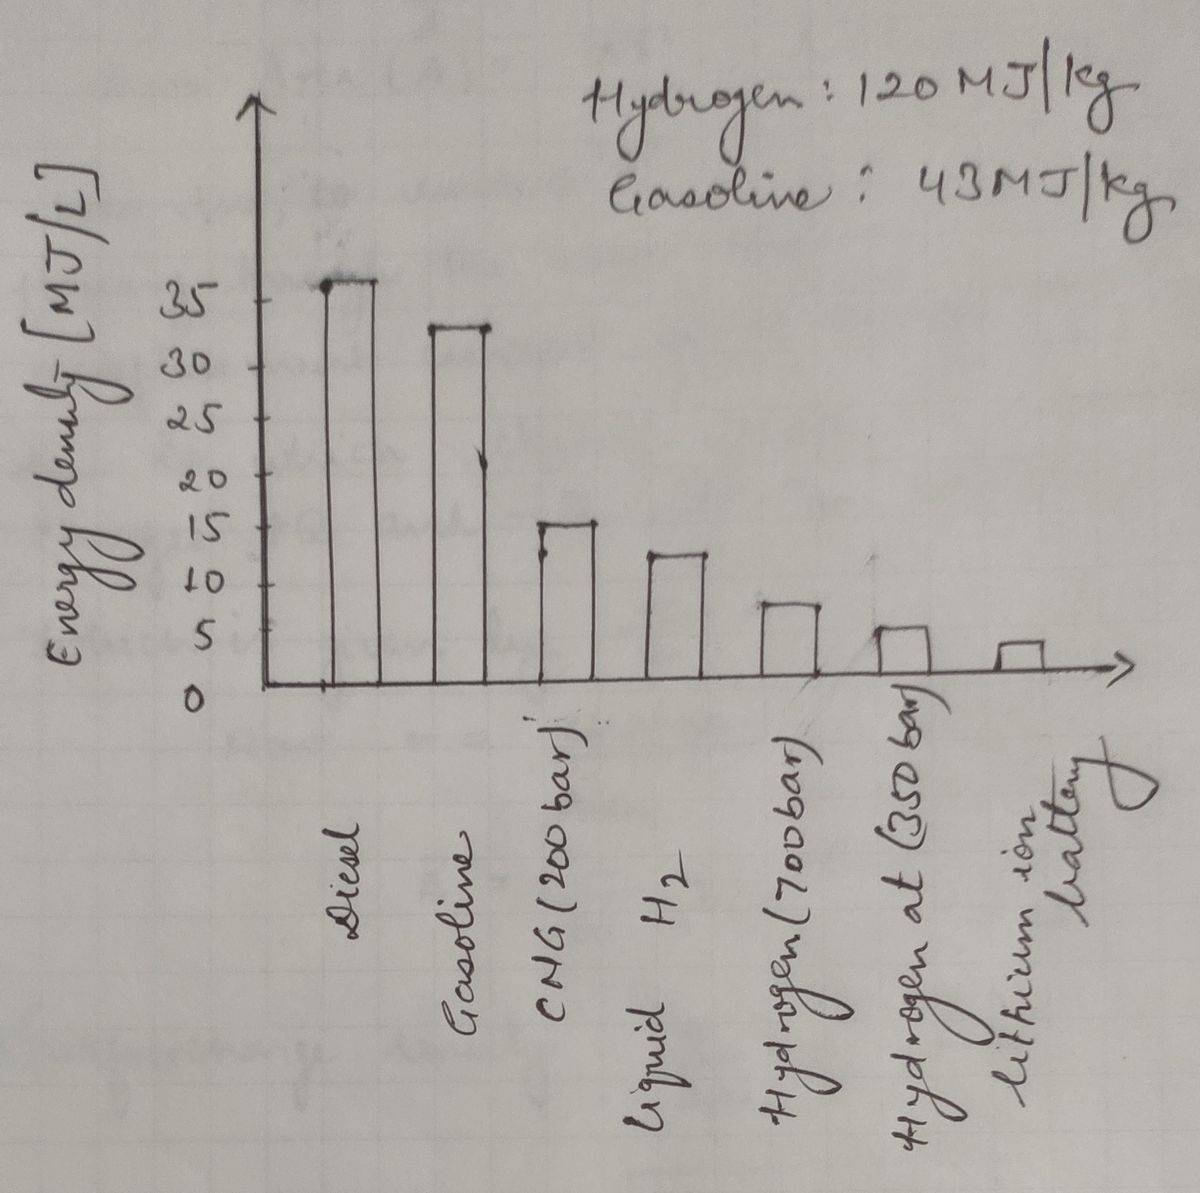 Hydrogen : 120 MJ/kg
Gasoline : 43 MJ/kg
Energy density [MJ/L]
35
30
25
20
15
10
5
0
Diesel
Gasoline
CNG (200 bar)
liquid H2
Hydrogen (700 bar)
Hydrogen at (350 bar)
lithium ion
battery